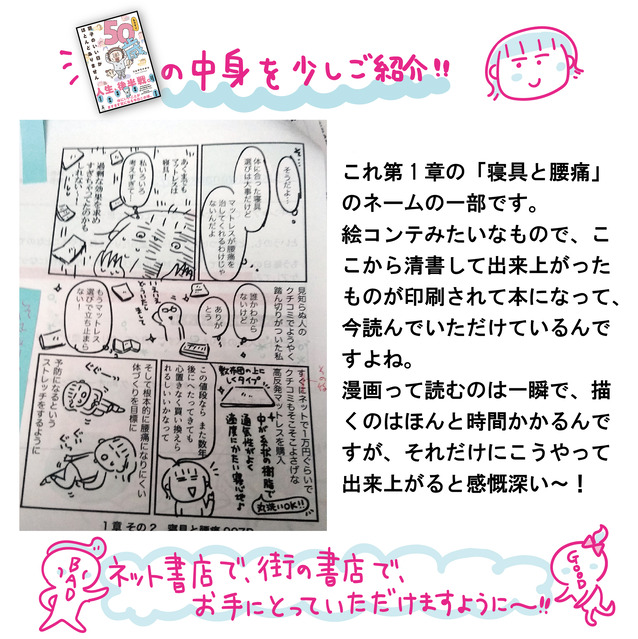 50
人生後半戦
の中身を少しご紹介!!
そうだよ…
体に合った寝具
選びは大事だけど
マットレスが腰痛を
治してくれるわけじゃ
ないんだよ
あくまでも
マットレスは
寝具!
私いろいろ
考えすぎて
過剰な効果を求め
すぎちゃってたのかも
しれない…!
見知らぬ人の
クチコミでようやく
踏ん切りがついた私
誰かわから
ないけど
ありが
とう
もうマットレス
選びで立ち止まら
ない!
すぐにネットで1万円ぐらいで
クチコミもそこそこよさげな
高反発マットレスを購入
敷布団の上に
しくタイプ
中が糸状の樹脂で
通気性がよく
適度にかたい寝心地♪
丸洗いOK!!
この値段なら また数年
後にへたってきても
心置きなく買い換えら
れるしいいかなって
そして根本的に腰痛になりにくい
体づくりを目標に
予防になるという
ストレッチをするように
1章 その2 寝具と腰痛
これ第1章の「寝具と腰痛」
のネームの一部です。
絵コンテみたいなもので、こ
こから清書して出来上がった
ものが印刷されて本になって、
今読んでいただけているんで
すよね。
漫画って読むのは一瞬で、描
くのはほんと時間かかるんで
すが、それだけにこうやって
出来上がると感慨深い〜！
BAD
ネット書店で、街の書店で、
お手にとっていただけますように〜!!
GOOD